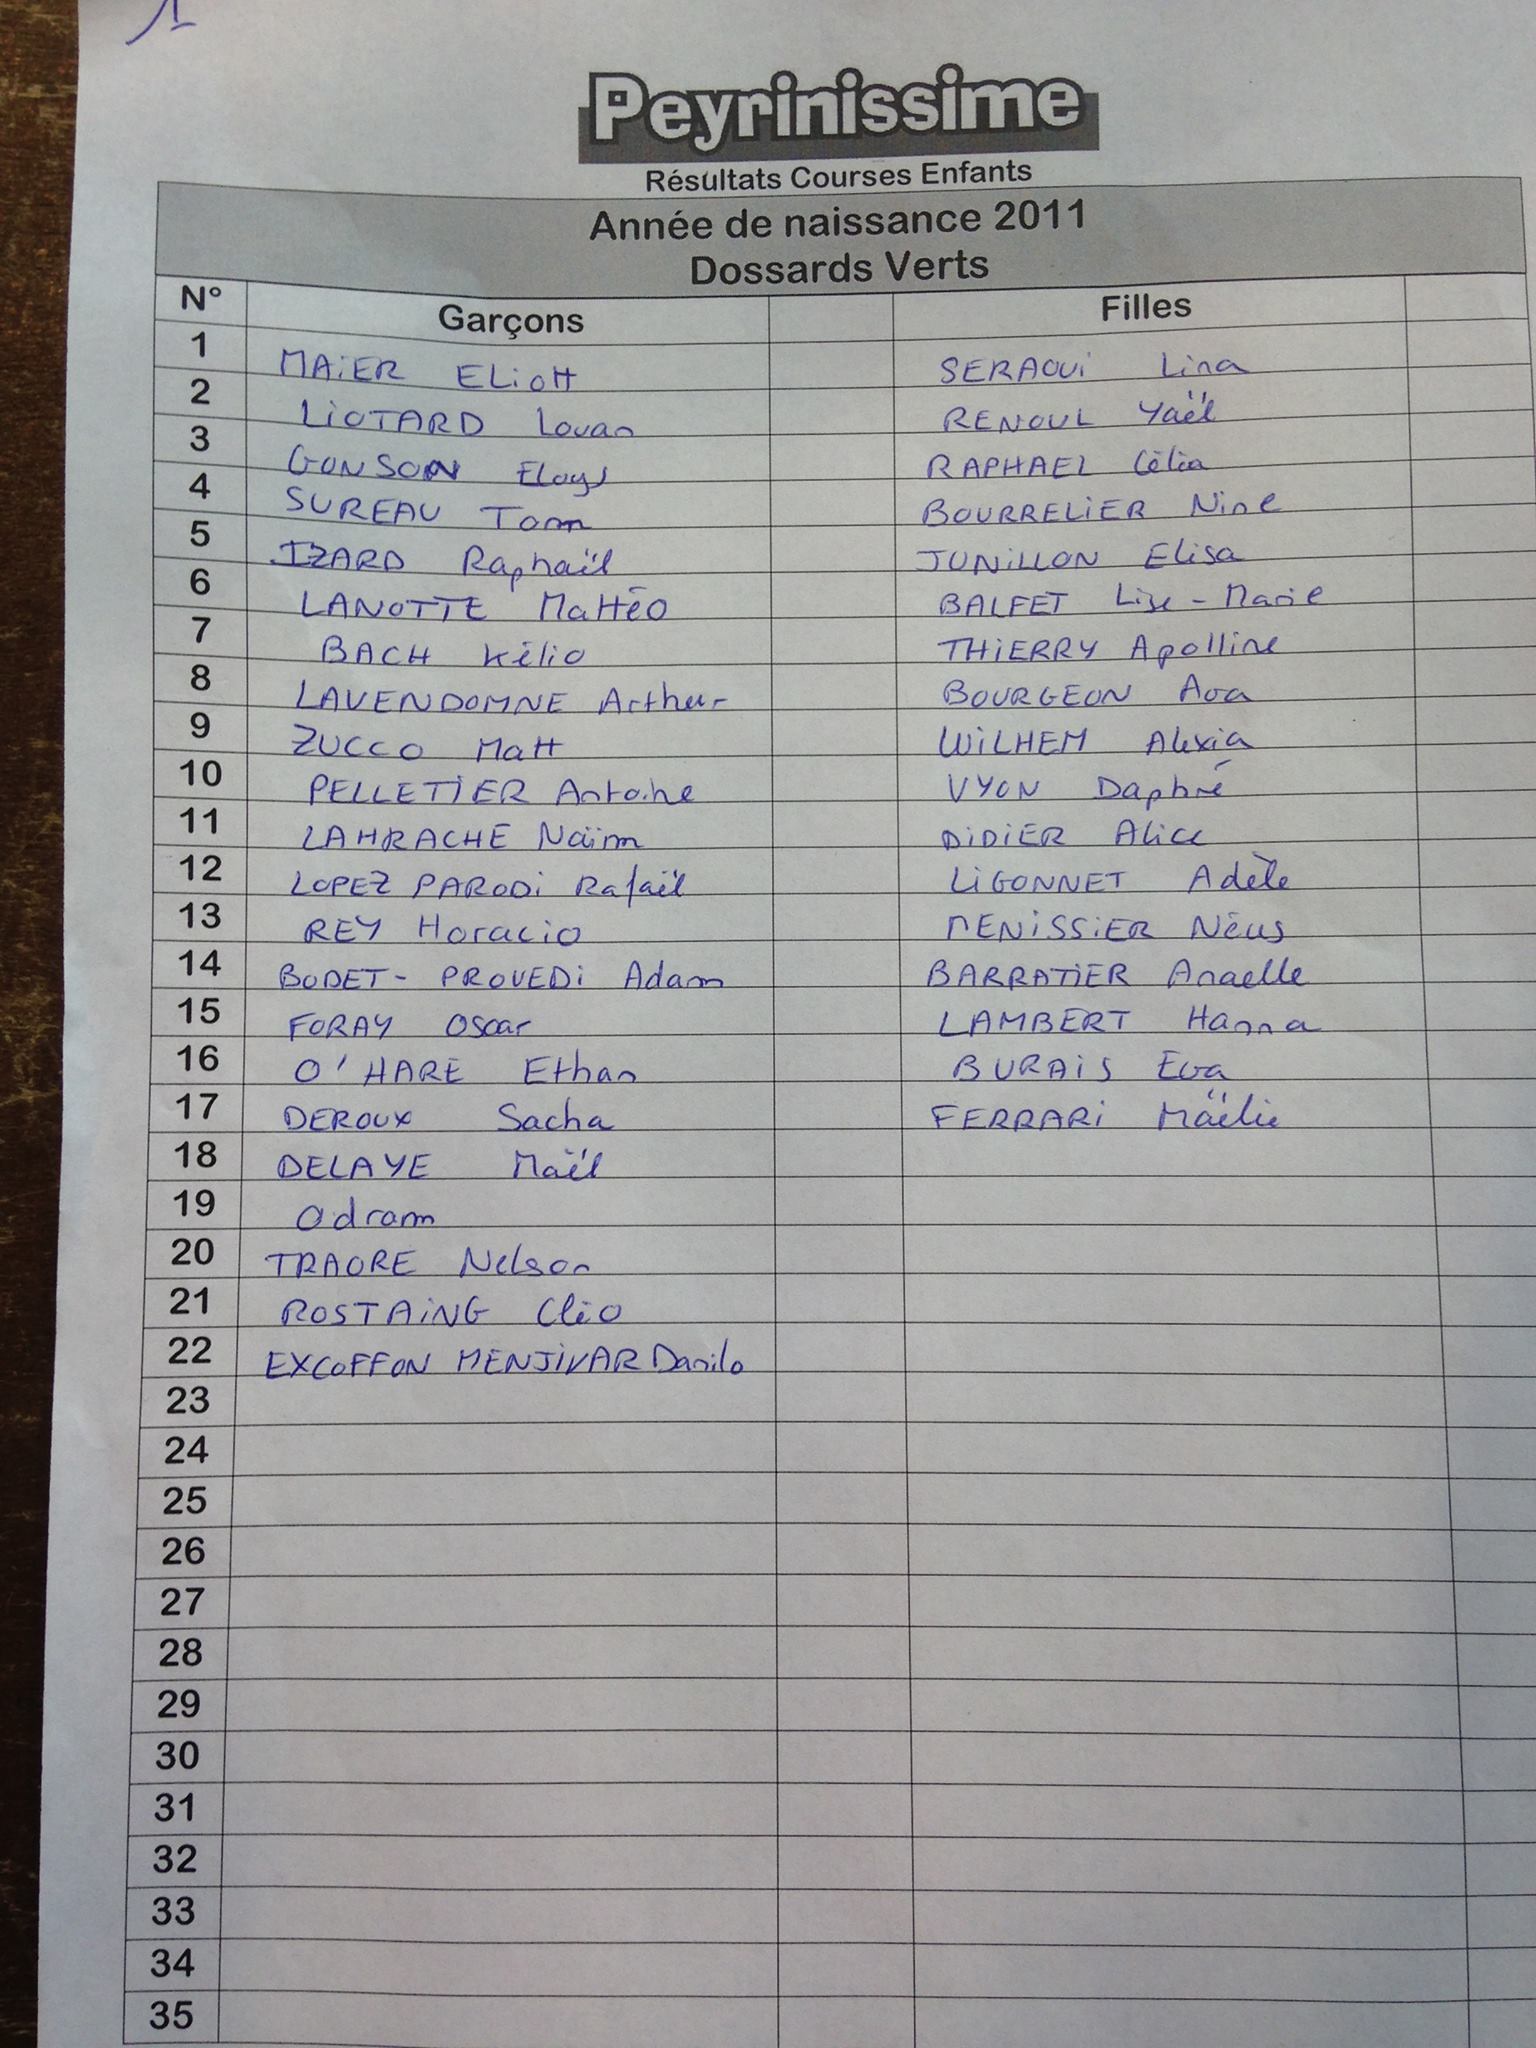 Peyrinissime
Résultats Courses Enfants
Année de naissance 2011
Dossards Verts
N° Garçons Filles
1 MAiER ELiott SERAOUi Lina
2 LiOTARD Louan RENOUL Yaël
3 GONSON Eloys RAPHAEL Célia
4 SUREAU Tom BOURRELiER Nine
5 IZARD Raphaël JUNiLLON Elisa
6 LANOTTE Mattéo BALFET Lise-Marie
7 BACH Kélio THiERRY Apolline
8 LAVENDOMNE Arthur BOURGEON Ava
9 ZUCCO Matt WiLHEM Alexia
10 PELLETiER Antoine VYON Daphné
11 LAHRACHE Naïm DiDiER Alice
12 LOPEZ PARODi Rafaël LiGONNET Adèle
13 REY Horacio MENiSSiER Néus
14 BODET-PROVEDi Adam BARRATiER Anaelle
15 FORAY Oscar LAMBERT Hanna
16 O'HARE Ethan BURAiS Eva
17 DEROUX Sacha FERRARi Maëlie
18 DELAYE Maël
19 Odram
20 TRAORE Nelson
21 ROSTAiNG Cléo
22 EXCOFFON MENJiVAR Danilo
23
24
25
26
27
28
29
30
31
32
33
34
35